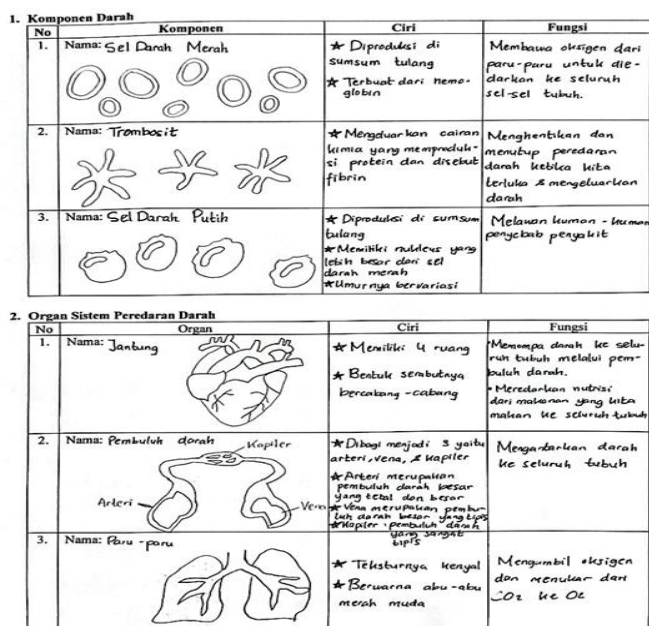 1. Komponen Darah
No Komponen Ciri Fungsi
1. Nama: Sel Darah Merah
★ Diproduksi di
sumsum tulang
★ Terbuat dari hemo-
globin
Membawa oksigen dari
paru-paru untuk die-
darkan ke seluruh
sel-sel tubuh.
2. Nama: Trombosit
★ Mengeluarkan cairan
kimia yang memproduk-
si protein dan disebut
fibrin
Menghentikan dan
menutup peredaran
darah ketika kita
terluka & mengeluarkan
darah
3. Nama: Sel Darah Putih
★ Diproduksi di sumsum
tulang
★ Memiliki nukleus yang
lebih besar dari sel
darah merah
★ Umurnya bervariasi
Melawan kuman - kuman
penyebab penyakit
2. Organ Sistem Peredaran Darah
No Organ Ciri Fungsi
1. Nama: Jantung
★ Memiliki 4 ruang
★ Bentuk serabutnya
bercabang - cabang
• Memompa darah ke selu-
ruh tubuh melalui pem-
buluh darah.
• Meredarkan nutrisi
dari makanan yang kita
makan ke seluruh tubuh
2. Nama: Pembuluh darah
Kapiler
Arteri
Vena
★ Dibagi menjadi 3 yaitu
arteri, vena, & kapiler
★ Arteri merupakan
pembuluh darah besar
yang tebal dan besar
★ Vena merupakan pembu-
luh darah besar yang tipis
★ Kapiler · pembuluh darah
yang sangat
tipis
Mengantarkan darah
ke seluruh tubuh
3. Nama: Paru - paru
★ Teksturnya kenyal
★ Berwarna abu-abu
merah muda
Mengambil oksigen
dan menukar dari
CO2 ke O2